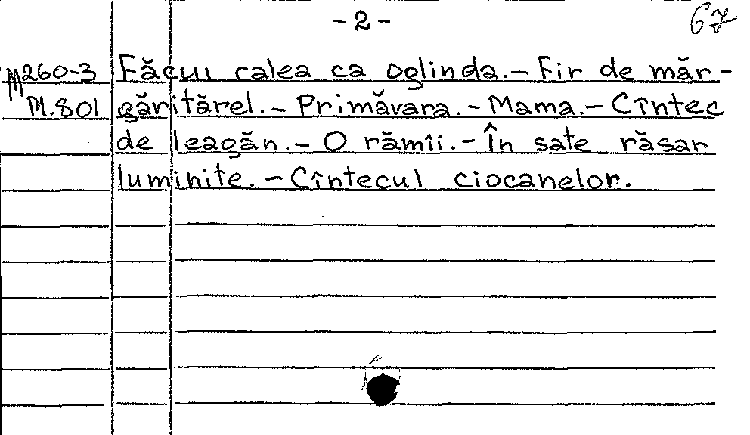 -2-
67
M260-3 Făcui calea ca oglinda.-Fir de măr-
M.801 găritărel.-Primăvara.-Mama.-Cîntec
de leagăn.-O rămîi.-În sate răsar
luminite.-Cîntecul ciocanelor.